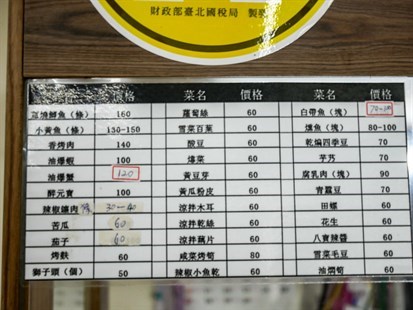 財政部臺北國稅局 製
菜名 價格 菜名 價格 菜名 價格
鯽魚(條) 160 蘿蔔絲 60 白帶魚(塊)
小黃魚(條) 130-150 雪菜百葉 60 燻魚(塊) 80-100
香烤肉 140 酸豆 60 乾煸四季豆 70
油爆蝦 100 烤菜 60 芋艿 70
油爆蟹 120 黃豆芽 60 腐乳肉(塊) 90
醉元寶 100 黃瓜粉皮 60 青龍豆 70
辣椒鑲肉 30-40 涼拌木耳 60 田螺 60
苦瓜 60 涼拌乾絲 60 花生 60
茄子 60 涼拌藕片 60 八寶辣醬 60
烤麩 60 咸菜烤筍 80 雪菜毛豆 60
獅子頭(個) 50 辣椒小魚乾 60 油燜筍 60